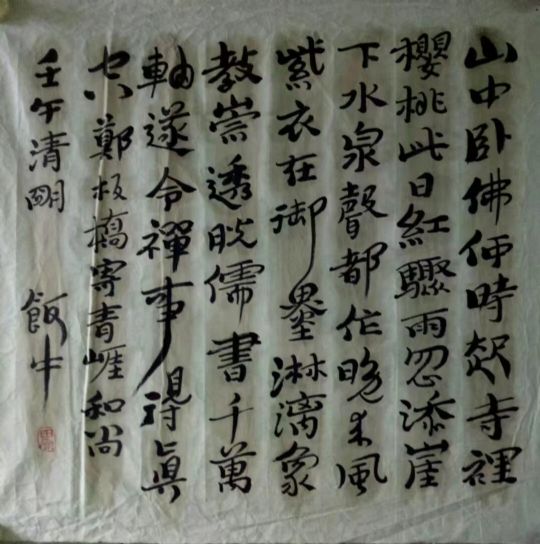 山中卧佛何時起寺裡
櫻桃此日紅驟雨忽添崖
下水泉聲都作晚来風
紫衣在御墨淋漓象
教崇透脱儒書千萬
軸遂令禪事得真
空鄭板橋寄青崕和尚
壬午清明 飯牛